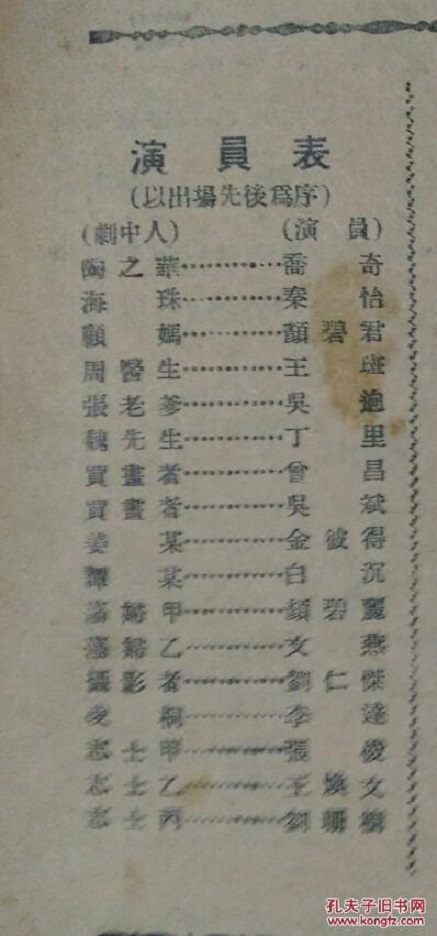 演員表
(以出場先後爲序)
(劇中人) (演員)
陶之華…………喬奇
海珠…………秦怡
顧媽…………顏碧君
周醫生…………王班
張老爹…………吳
魏先生…………丁里
買畫者…………曾昌
賣畫者…………吳斌
姜某…………金彼得
譚某…………白沉
蕩婦甲…………顏碧麗
蕩婦乙…………文燕
攝影者…………劉仁傑
桐…………李達
志士甲…………張俊
志士乙…………王煥文
志士丙…………劉珊
孔夫子旧书网
www.kongfz.com